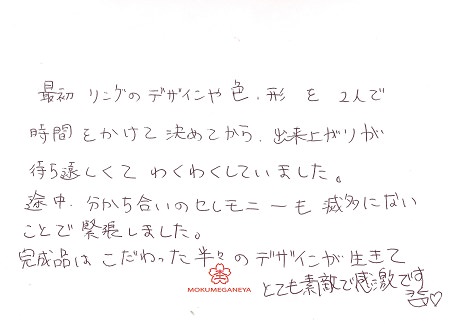 最初 リングのデザインや色、形を 2人で
時間をかけて決めてから、出来上がりが
待ち遠しくてわくわくしていました。
途中、分かち合いのセレモニーも滅多にない
ことで緊張しました。
完成品はこだわった半々のデザインが生きて
とても素敵で感激です
MOKUMEGANEYA